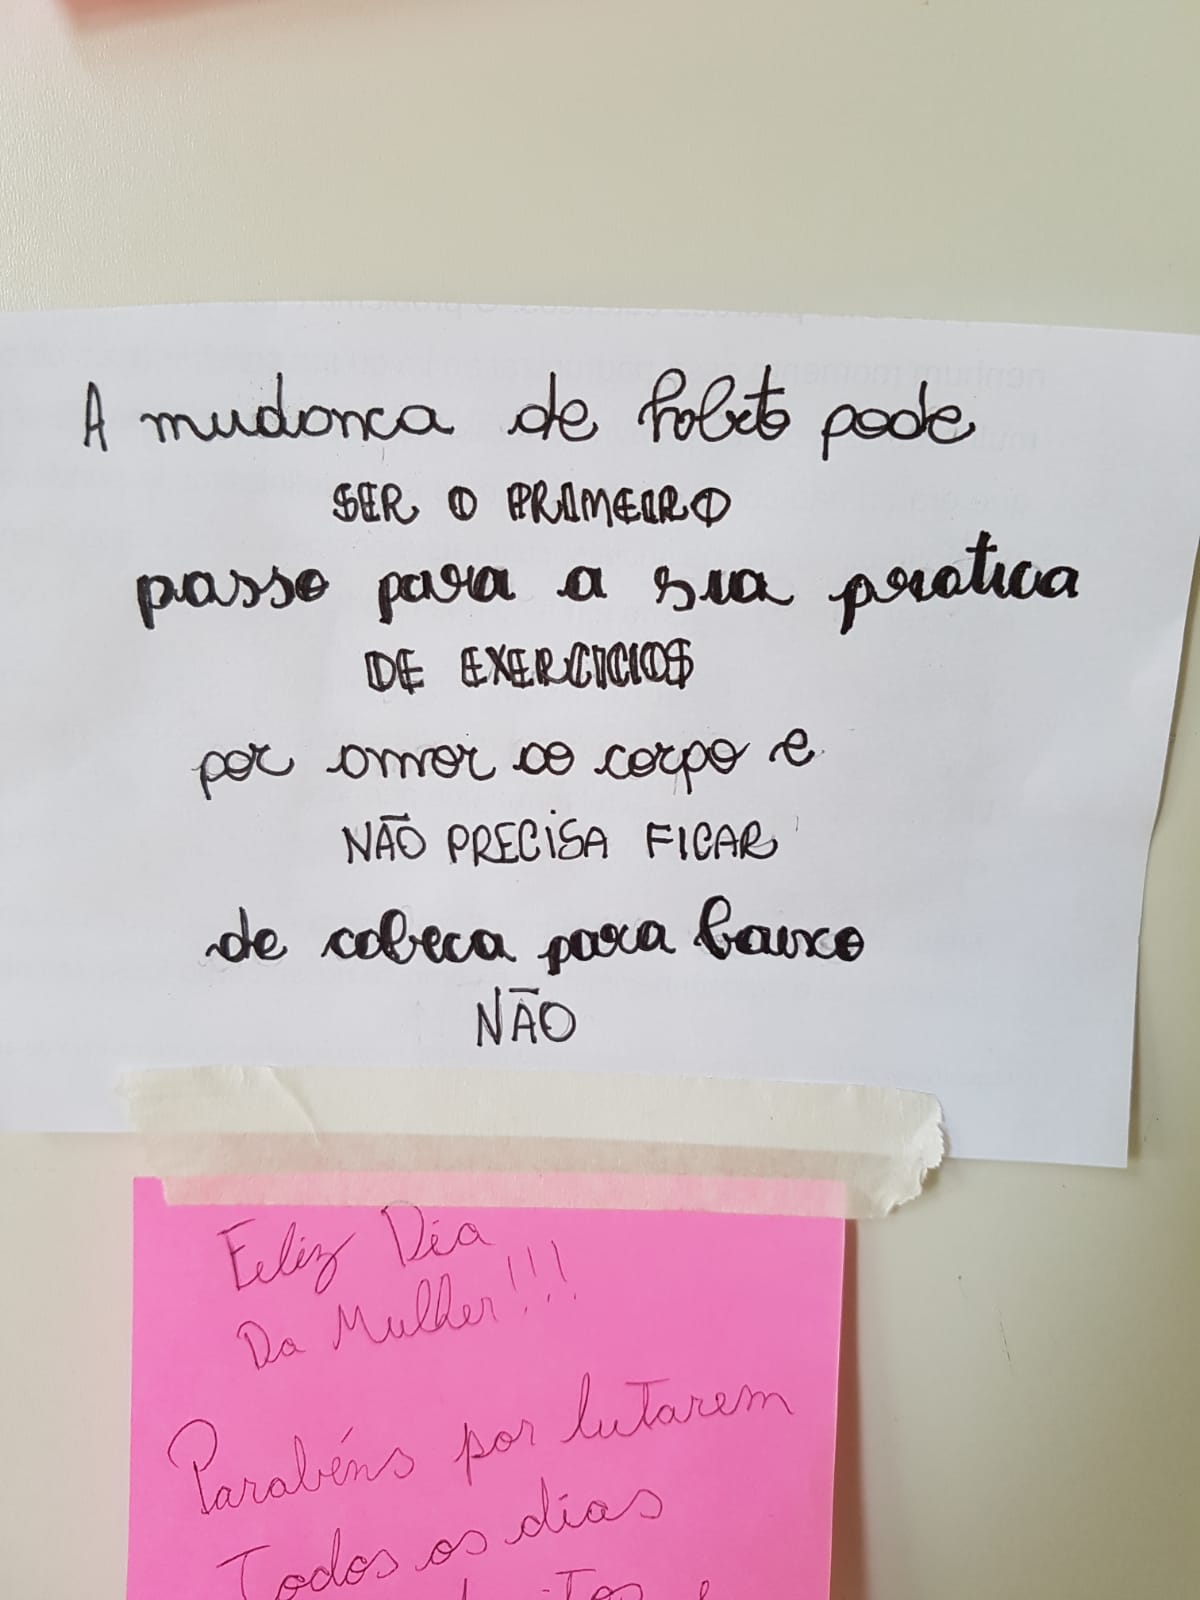 A mudanca de habito pode
SER O PRIMEIRO
passo para a sua pratica
DE EXERCICIOS
por amor ao corpo e
NÃO PRECISA FICAR
de cabeca para baixo
NÃO
Feliz Dia
Da Mulher!!!
Parabéns por lutarem
Todos os dias